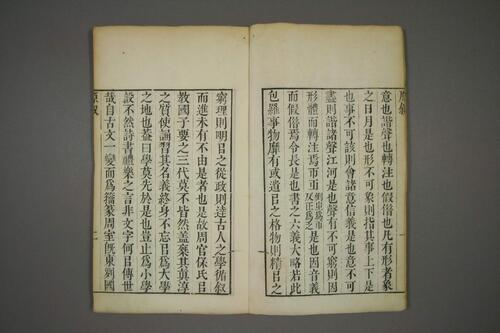 原叙
意也諧聲也轉注也假借也凡有形者象
之日月是也形不可象則指其事上下是
也事不可該則會諸意信義是也意不可
盡則諧諸聲江河是也聲有不可窮則因
形體而轉注焉帀𠀆倒㞢爲帀反正爲𠀆是也因音義
而假借焉令長是也書之六義大略若此
包羅事物靡有或遺㠯之格物則精㠯之
窮理則明㠯之從政則達古人之學循敘
而進未有不由是者也是故周官保氏㠯
教國子要之三代莫不皆然蓋葉其黃淳
之質使誦習其名義終身不忘㠯爲大學
之地也蓋曰學莫先於是也豈止爲小學
設不然詩書禮樂之言非文字何㠯傳世
哉自古文一變而爲籀篆周室旣東列國
原叙
二